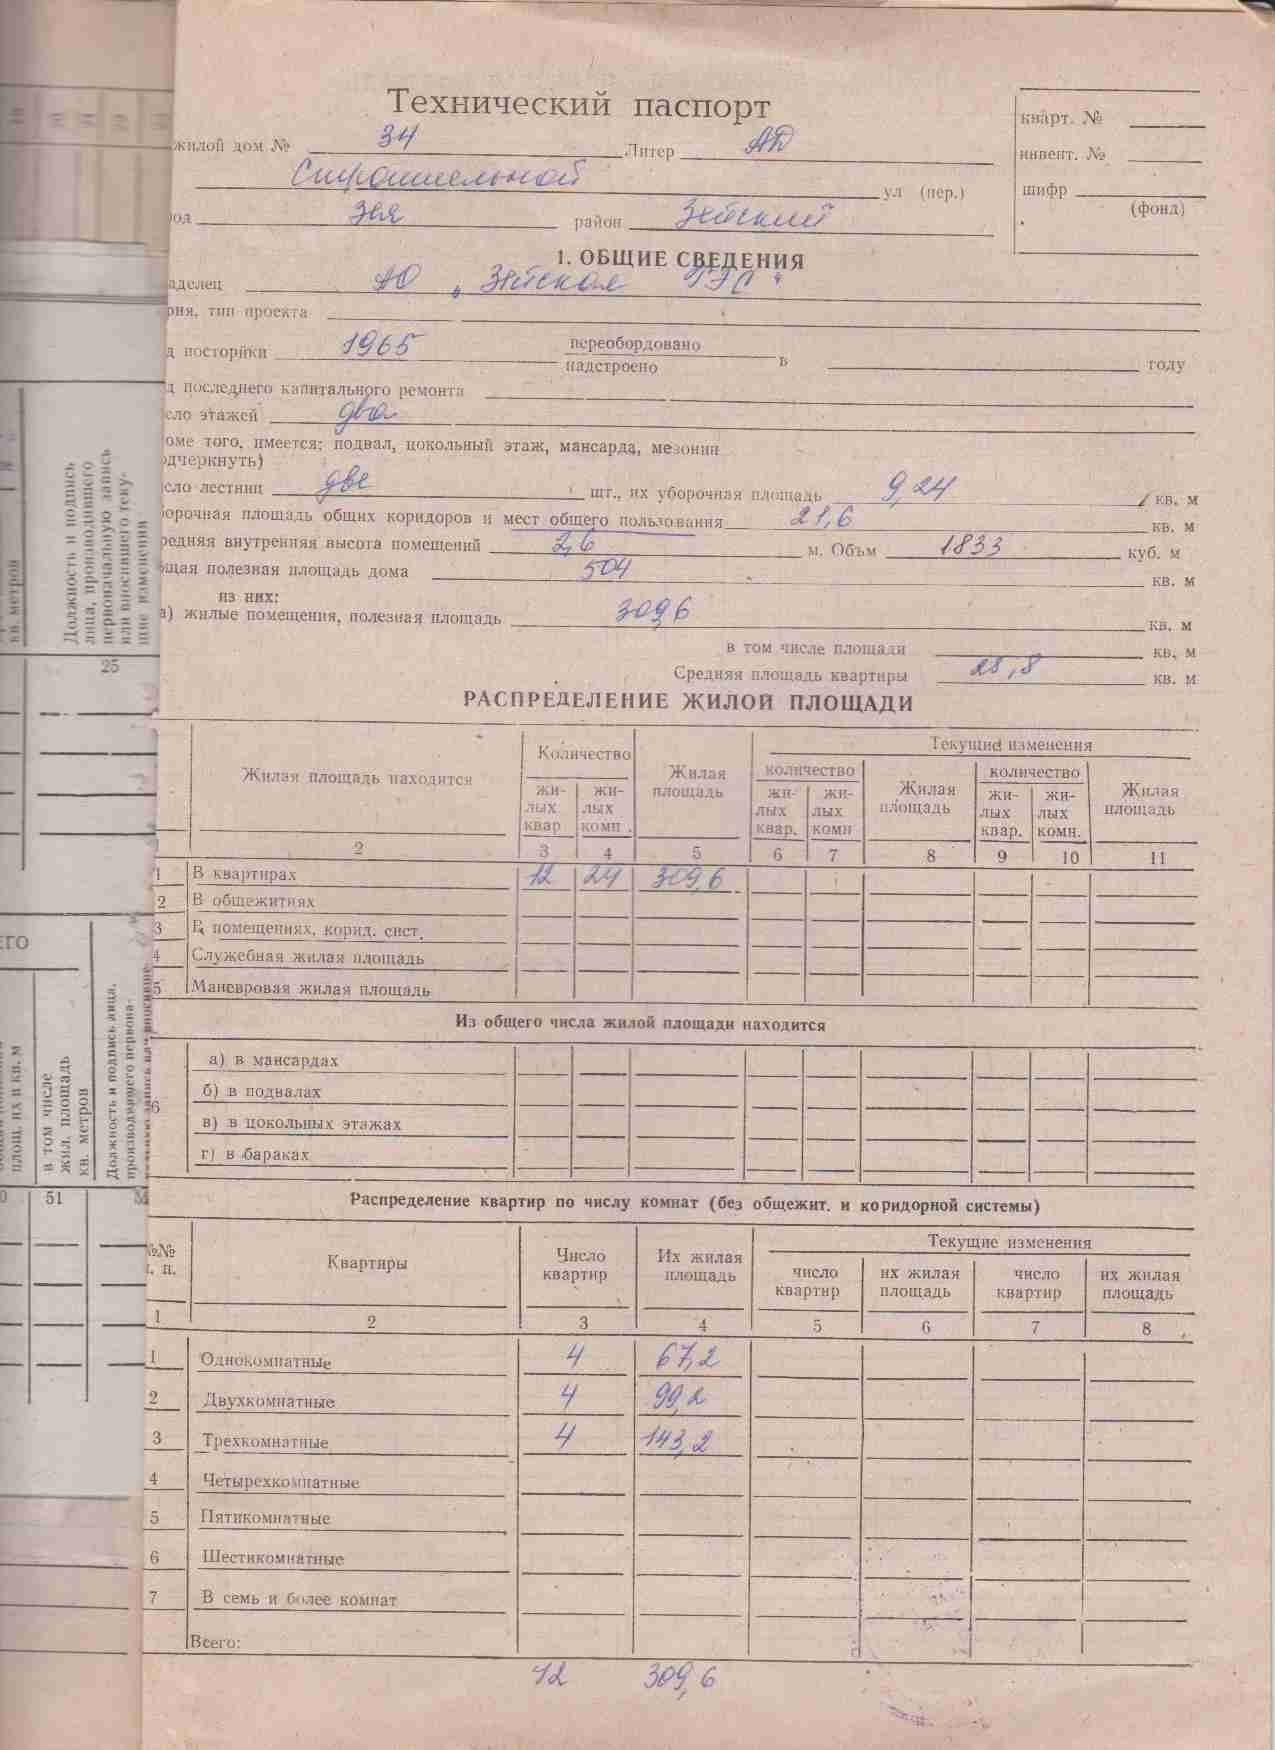 Технический паспорт
жилой дом № 34 Литер
кварт. №
инвент. №
шифр
(фонд)
Строительной ул (пер.)
од Зея район Зейский
1. ОБЩИЕ СВЕДЕНИЯ
аделец АО „Зейская ГЭС“
рия, тип проекта
д посторйки 1965 переобордовано
надстроено в году
д последнего капитального ремонта
сло этажей два
оме того, имеется: подвал, цокольный этаж, мансарда, мезонин
одчеркнуть)
сло лестниц две шт., их уборочная площадь 9,24 кв. м
борочная площадь общих коридоров и мест общего пользования 21,6 кв. м
редняя внутренняя высота помещений 2,6 м. Объм 1833 куб. м
щая полезная площадь дома 504 кв. м
из них:
а) жилые помещения, полезная площадь 309,6 кв. м
в том числе площади кв. м
Средняя площадь квартиры 25,8 кв. м
РАСПРЕДЕЛЕНИЕ ЖИЛОЙ ПЛОЩАДИ
Жилая площадь находится
Количество
жилых квар
жилых комн.
Жилая площадь
Текущие изменения
количество
жилых квар.
жилых комн
Жилая площадь
количество
жилых квар.
жилых комн.
Жилая площадь
2 3 4 5 6 7 8 9 10 11
1 В квартирах 12 24 309,6
2 В общежитиях
3 В помещениях, корид. сист.
4 Служебная жилая площадь
5 Маневровая жилая площадь
Из общего числа жилой площади находится
6
а) в мансардах
б) в подвалах
в) в цокольных этажах
г) в бараках
Распределение квартир по числу комнат (без общежит. и коридорной системы)
№№
п. п.
Квартиры
Число квартир
Их жилая площадь
Текущие изменения
число квартир
их жилая площадь
число квартир
их жилая площадь
1 2 3 4 5 6 7 8
1 Однокомнатные 4 67,2
2 Двухкомнатные 4 99,2
3 Трехкомнатные 4 143,2
4 Четырехкомнатные
5 Пятикомнатные
6 Шестикомнатные
7 В семь и более комнат
Всего:
12 309,6
кв. метров
Должность и подпись
лица, производившего
первоначальную запись
или вносившего теку-
щие изменения
25
ЕГО
площ. их и кв. м
в том числе
жил. площадь
кв. метров
Должность и подпись лица,
производившего первона-
51